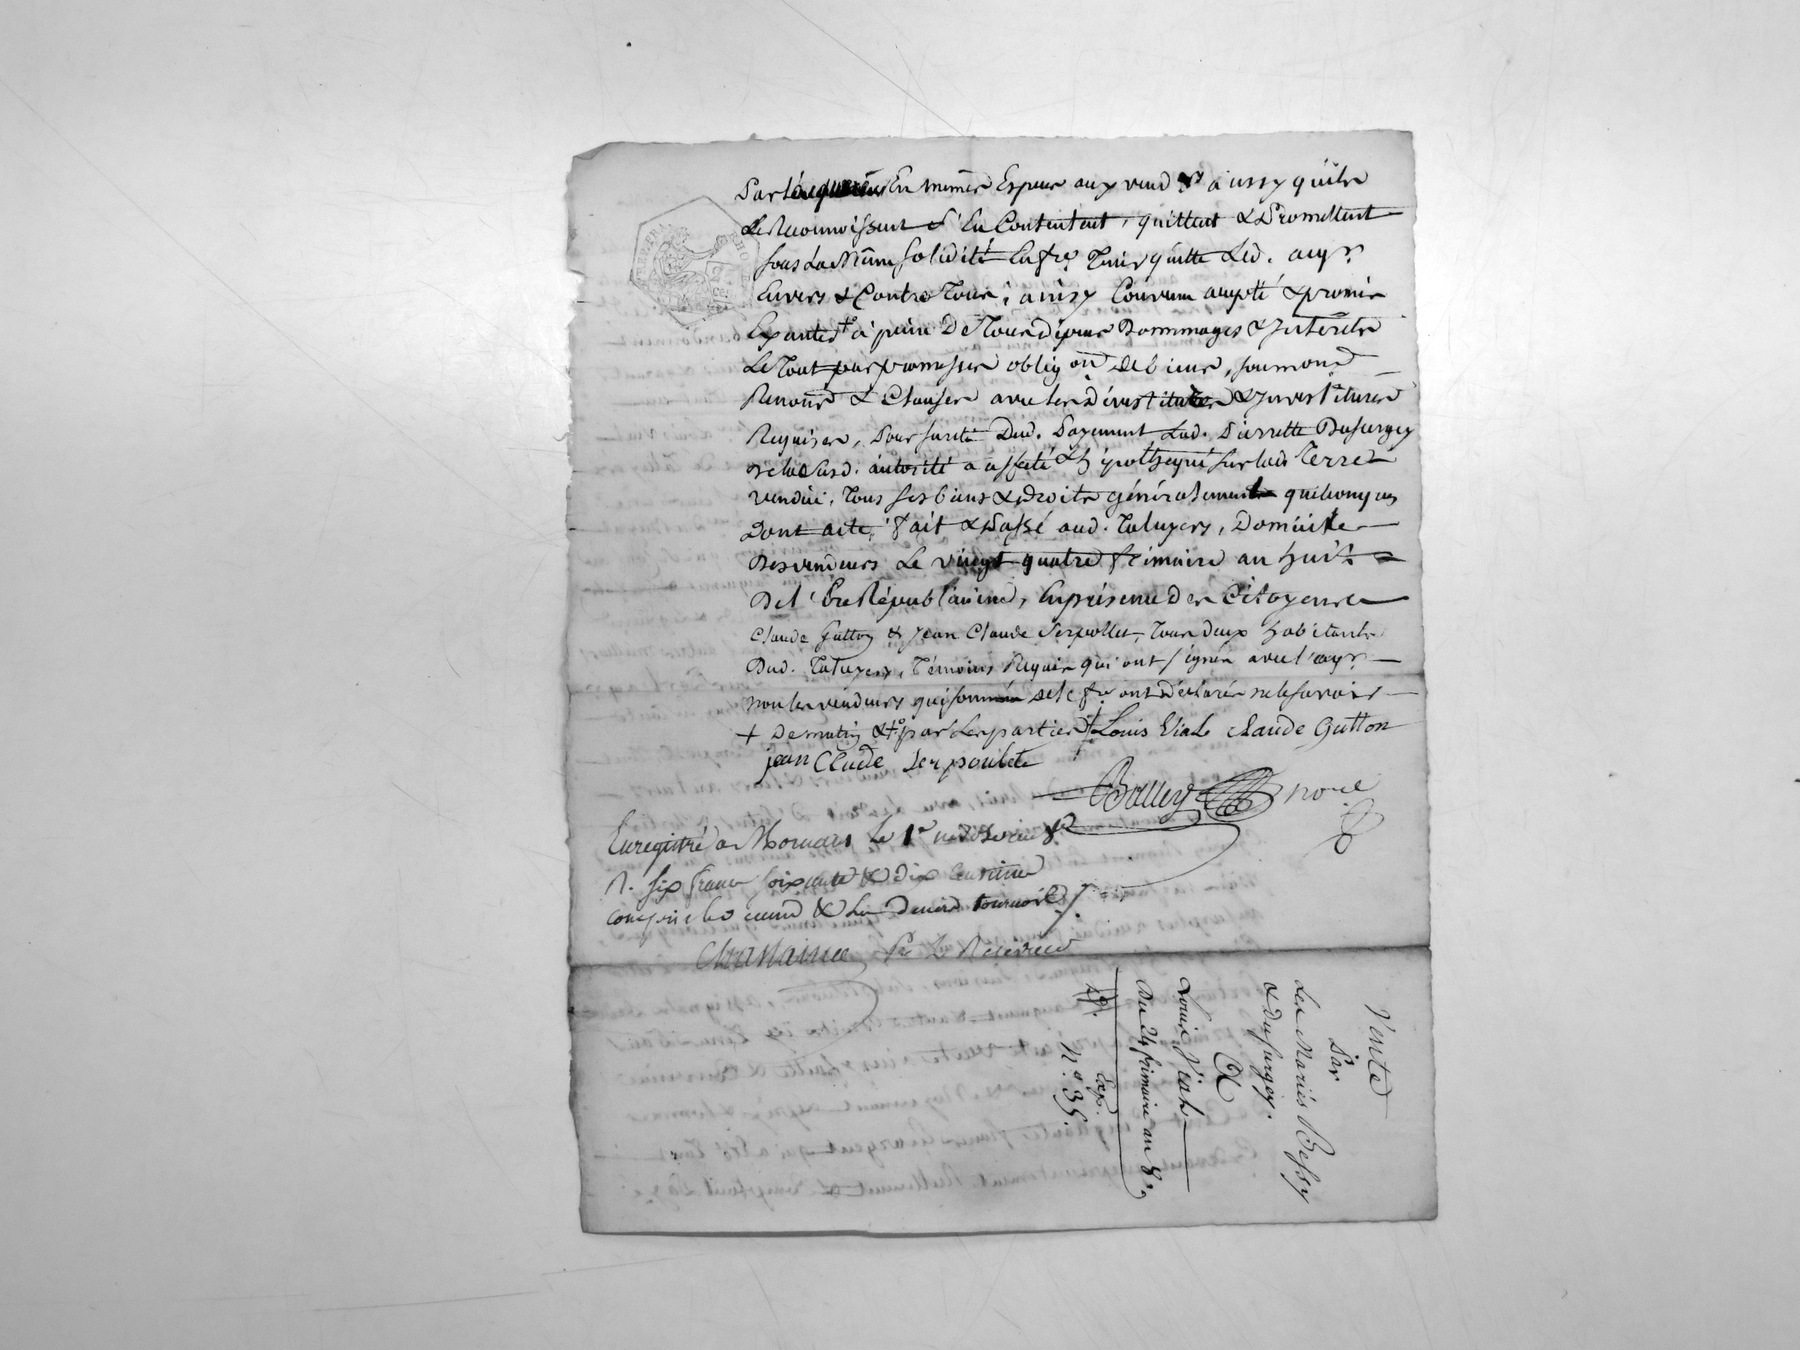 Par l'acquereur En mêmes Especes aux vend.rs ainssy qu'ils
Le Reconnoissent s'En Contentent, quittent & Promettent
sous La même solidité En f.re Tenir quitte Led. acqr.
Envers & Contre Tous; ainssy Convenu accepté & promis
Executer à peine De Tous dépens Dommages & Interets
Le Tout par promesses oblig.on De biens, soumons
Renons & Clauses avec les dévestitures & Investitures
Requises, Pour sureté Dud. Payement Lad. Pierrette Dufurgey
de lad. autorité a affecté & hypothequé sur lad. Terre
vendüe, Tous ses biens & Droits généralement quelconques
Dont acte, fait & Passé aud. Taluyers, Domicile
Des vendeurs Le vingt quatre frimaire an huit
De l'Ere Républicaine, En présence Des Citoyens
Claude Gutton & Jean Claude Serpollet, Tous deux habitants
Dud. Taluyers, Témoins Requis qui ont signés avec l'acqr.
non les vendeurs qui sommés De le f.re ont Déclarés ne le savoir
+ De matin & par Les parties Louis Viale Claude Gutton
jean Claude Serpoulet
Bailly nore
Enregistré a Mornant le 1er nivose an 8
R. six francs soixante & dix centimes
compris le
Par Le Receveur
Vente
Par
Les Mariés Bessy
& Dufurgey.
A
Louis Viale
Du 24 frimaire an 8.
Exp.
N.° 35.